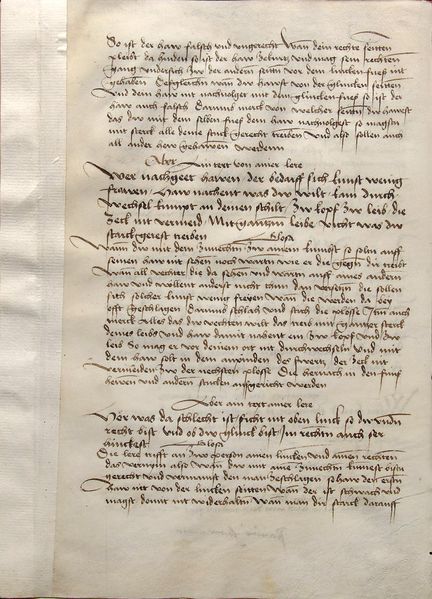 So ist der haw falsch vnd vngerecht Wan dein rechte seitten
pleibt da hinden so ist der haw zu kurtz vnd mag sein rechten
gang vndersich zw der andern seitten vor dem lincken fueß nit
gehaben Desgleichn wan dw hawst von der glincken seitten
Vnd dem haw nit nachvolgst mit dem glincken fueß so ist der
haw auch falsch Darumb merck von welicher seitten dw hawest
das dw mit dem selben fueß dem haw nachvolgest so magstu
mit sterck alle deine stuck gerecht treiben Vnd also sollen auch
all ander hew gehawen werdenn
Aber ain text von ainer lere
Wer nachgeet hawen der bedarff sich kunst wenig
frawen Haw nachent was dw wilt kain durch
wechsel kumpt an deinen schilt Zw kopf zw leib die
zeck nit vermeid Mit gantzm leibe vicht was dw
starck gerest treiben
Glosa
Wann dw mit dem zuvechtn zw ainem kumpst so soltu auff
seinen haw nit sehen noch wartn wie er die gegn dir treibt
Wan all vechter die da sehen vnd wartn auff aines andern
haw vnd wollent anderst nicht thun dan versetzn die dollen
sich solicher kunst wenig frewen Wan sie werden da bey
offt geschlagen Darumb schlach vnd stich die plosse Jtm auch
merck Alles das dw vechten wilt das treib mit gantzer sterck
deines leibs vnd haw damit nahent ein zw kopff vnd zw
leib So mag er vor deinem ort nit durchwechseln Vnd mit
dem haw solt in dem anpinden des swertz der zeck nit
vermeiden zw der nechsten plosse Die hernach in den funf
hewen vnd andern stucken aussgericht werden
Aber ain text ainer lere
Hör was da schlecht ist ficht nit oben linck so dw recht
pist vnd ob dw glinck bist Im rechtn auch ser
hinckest
Glosa
Die lere trifft an zwo person ainen lincken vnd ainen rechten
das vernym also Wan dw mit aine zuvechtn kumest bistu
gerecht vnd vermainst den man zuschlagen so haw den ersten
haw nit von der lincken seitten Wan der ist schwach vnd
magst domit nit widerhaltn Wan man dir starck darauff